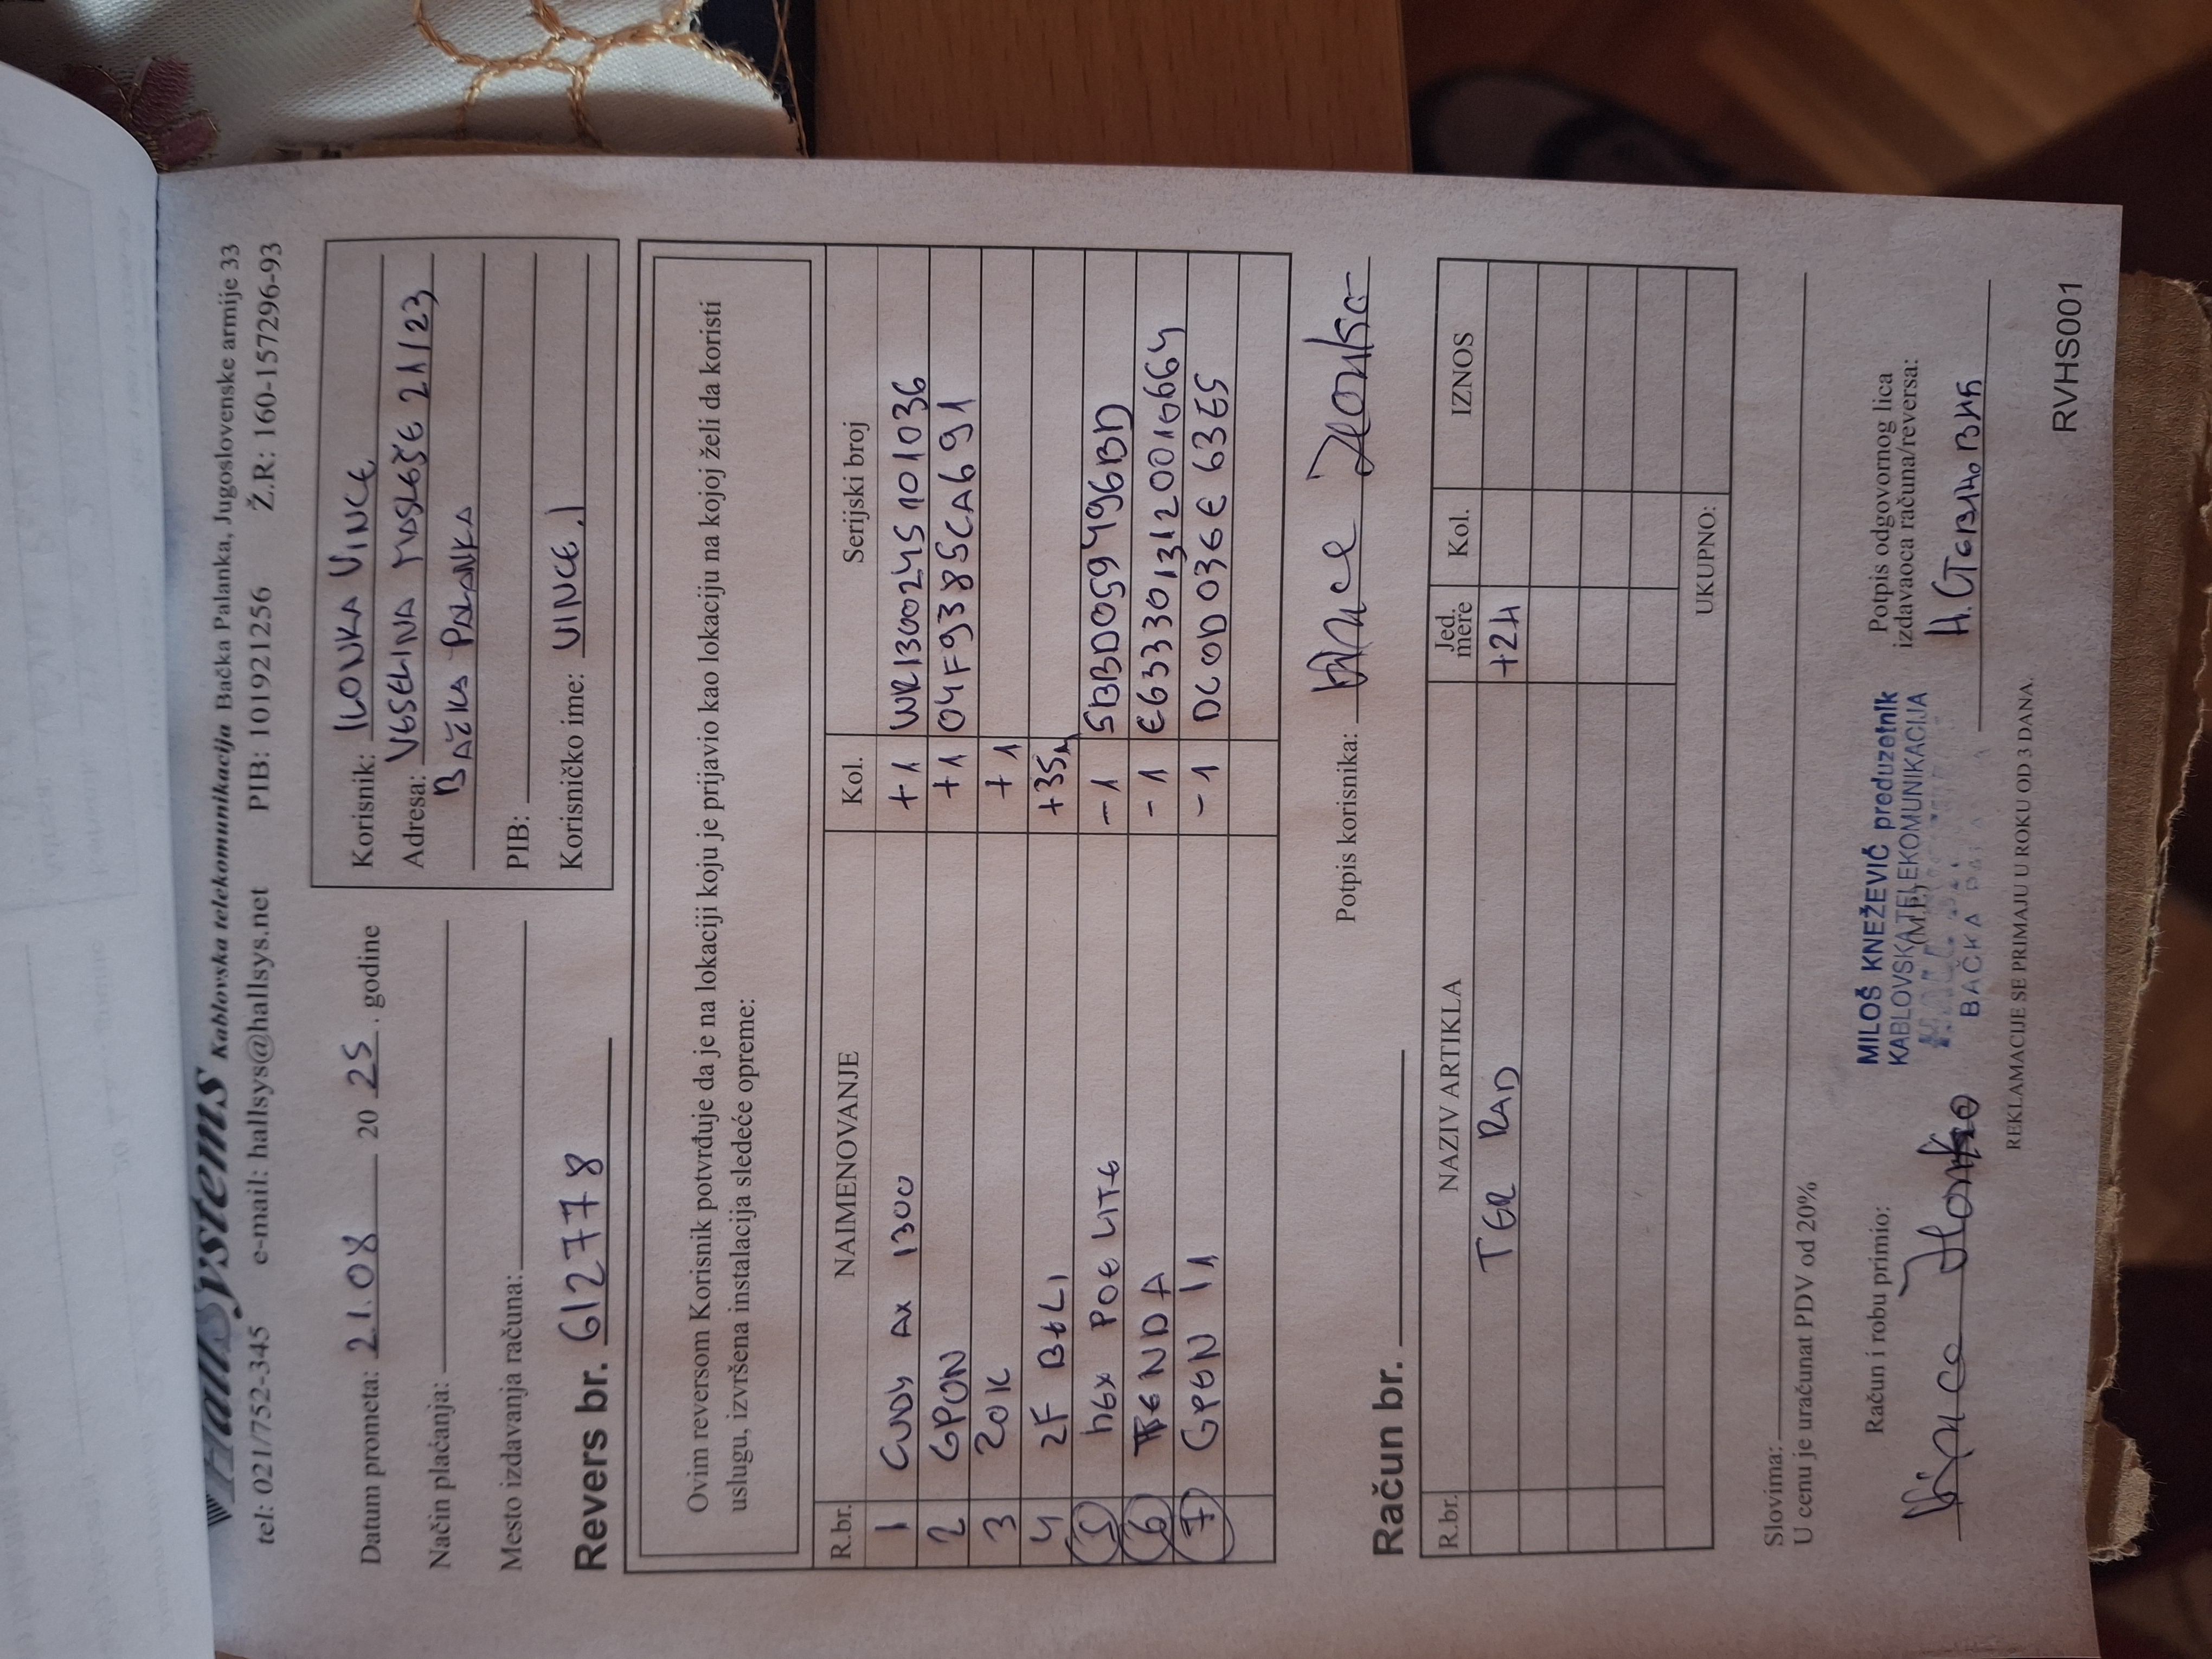 HallSystems Kablovska telekomunikacija Bačka Palanka, Jugoslovenske armije 33
tel: 021/752-345 e-mail: hallsys@hallsys.net PIB: 101921256 Ž.R: 160-157296-93
Datum prometa: 21.08 20 25. godine
Način plaćanja:
Mesto izdavanja računa:
Revers br. 612778
Korisnik: ILONKA VINCE
Adresa: VESELINA MASLEŠE 21/23
BAČKA PALANKA
PIB:
Korisničko ime: VINCE.I
Ovim reversom Korisnik potvrđuje da je na lokaciji koju je prijavio kao lokaciju na kojoj želi da koristi
uslugu, izvršena instalacija sledeće opreme:
R.br. NAIMENOVANJE Kol. Serijski broj
1 CUDY AX 1300 +1 WR1300245101036
2 GPON +1 04F9385CA691
3 ZOK +1
4 2F BELI +35m
5 hEX POE LITE -1 5BBD059496BD
6 TENDA -1 E6333013120016664
7 GPON 11 -1 DC0D036E63E5
Potpis korisnika: Vince Ilonka
Račun br.
R.br. NAZIV ARTIKLA Jed. mere Kol. IZNOS
TER RAD +2H
UKUPNO:
Slovima:
U cenu je uračunat PDV od 20%
Račun i robu primio:
Vince Ilonka
MILOŠ KNEŽEVIĆ preduzetnik
KABLOVSKA TELEKOMUNIKACIJA
(M.P.)
BAČKA PALANKA
Potpis odgovornog lica
izdavaoca računa/reversa:
REKLAMACIJE SE PRIMAJU U ROKU OD 3 DANA.
RVHS001